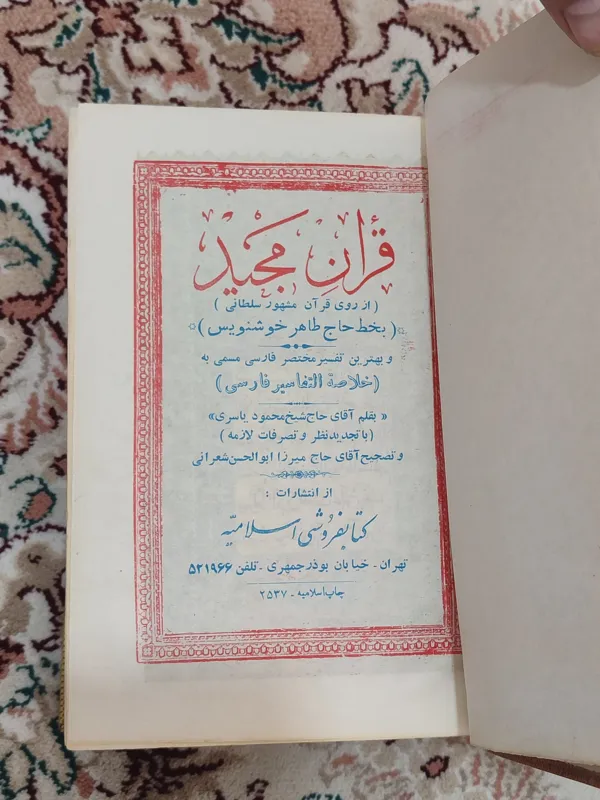 قرآن مجید
( از روی قرآن مشهور سلطانی )
( بخط حاج طاهر خوشنویس )
و بهترین تفسیر مختصر فارسی مسمی به
( خلاصة التفاسیر فارسی )
« بقلم آقای حاج شیخ محمود یاسری »
( با تجدید نظر و تصرفات لازمه )
و تصحیح آقای حاج میرزا ابوالحسن شعرانی
از انتشارات :
کتابفروشی اسلامیّه
تهران - خیابان بوذرجمهری - تلفن ۵۲۱۹۶۶
چاپ اسلامیه - ۲۵۳۷